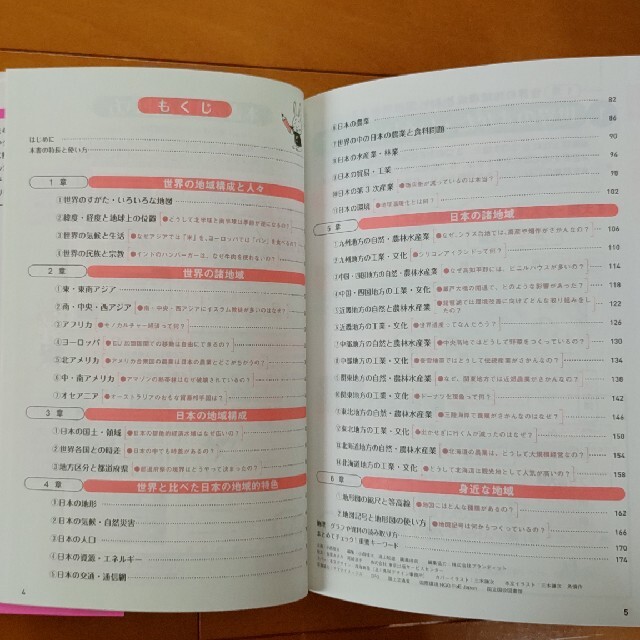 もくじ
はじめに
本書の特長と使い方
1章 世界の地域構成と人々
①世界のすがた・いろいろな地図
②緯度・経度と地球上の位置 ●どうして北半球と南半球は季節が逆になるの?
③世界の気候と生活 ●なぜアジアでは「米」を、ヨーロッパでは「パン」を食べるの?
④世界の民族と宗教 ●インドのハンバーガーは、なぜ牛肉を使わない?
2章 世界の諸地域
①東・東南アジア
②南・中央・西アジア ●南・中央・西アジアにイスラム教徒が多いのはなぜ?
③アフリカ ●モノカルチャー経済って何?
④ヨーロッパ ●EU加盟国間での移動は自由にできるの?
⑤北アメリカ ●アメリカ合衆国の農業は日本の農業とどこがちがうの?
⑥中・南アメリカ ●アマゾンの熱帯林はなぜ破壊されているの?
⑦オセアニア ●オーストラリアのむかえる貿易相手国は?
3章 日本の地域構成
①日本の国土・領域
②世界各国との時差 ●日本の中でも時差があるの?
③地方区分と都道府県 ●都道府県の境界はどうやって決まったの?
4章 世界と比べた日本の地域的特色
①日本の地形
②日本の気候・自然災害
③日本の人口
④日本の資源・エネルギー
⑤日本の交通・通信網
4
⑥日本の農業 82
⑦世界の中の日本の農業と食料問題 86
⑧日本の水産業・林業 90
⑨日本の貿易・工業 94
⑩日本の第3次産業 96
⑪日本の環境 ●地球温暖化とは何? 102
5章 日本の諸地域
①九州地方の自然・農林水産業 106
②九州地方の工業・文化 ●シリコンアイランドって何? 110
③中国・四国地方の自然・農林水産業 ●なぜ高知平野には、ビニルハウスが多いの? 114
④中国・四国地方の工業・文化 118
⑤近畿地方の自然・農林水産業 122
⑥近畿地方の工業・文化 ●世界遺産ってなんだろう? 126
⑦中部地方の自然と農林水産業 ●中央高地ではどうして野菜をつくっているの? 130
⑧中部地方の工業・文化 134
⑨関東地方の自然・農林水産業 ●なぜ、関東地方では近郊農業がさかんなの? 138
⑩関東地方の工業・文化 ●ドーナツ化現象って何? 142
⑪東北地方の自然・農林水産業 ●三陸海岸で養殖がさかんなのはなぜ? 146
⑫東北地方の工業・文化 150
⑬北海道地方の自然・農林水産業 ●北海道の農業は、どうして大規模経営なの? 154
⑭北海道地方の工業・文化 ●どうして北海道は観光地として人気が高いの? 158
6章 身近な地域
①地形図の縮尺と等高線 ●地図にはどんな種類があるの? 162
②地図記号と地形図の使い方 ●地図記号は何からつくっているの? 166
グラフや資料の読み取り方 170
まとめてチェック!重要キーワード 174
5